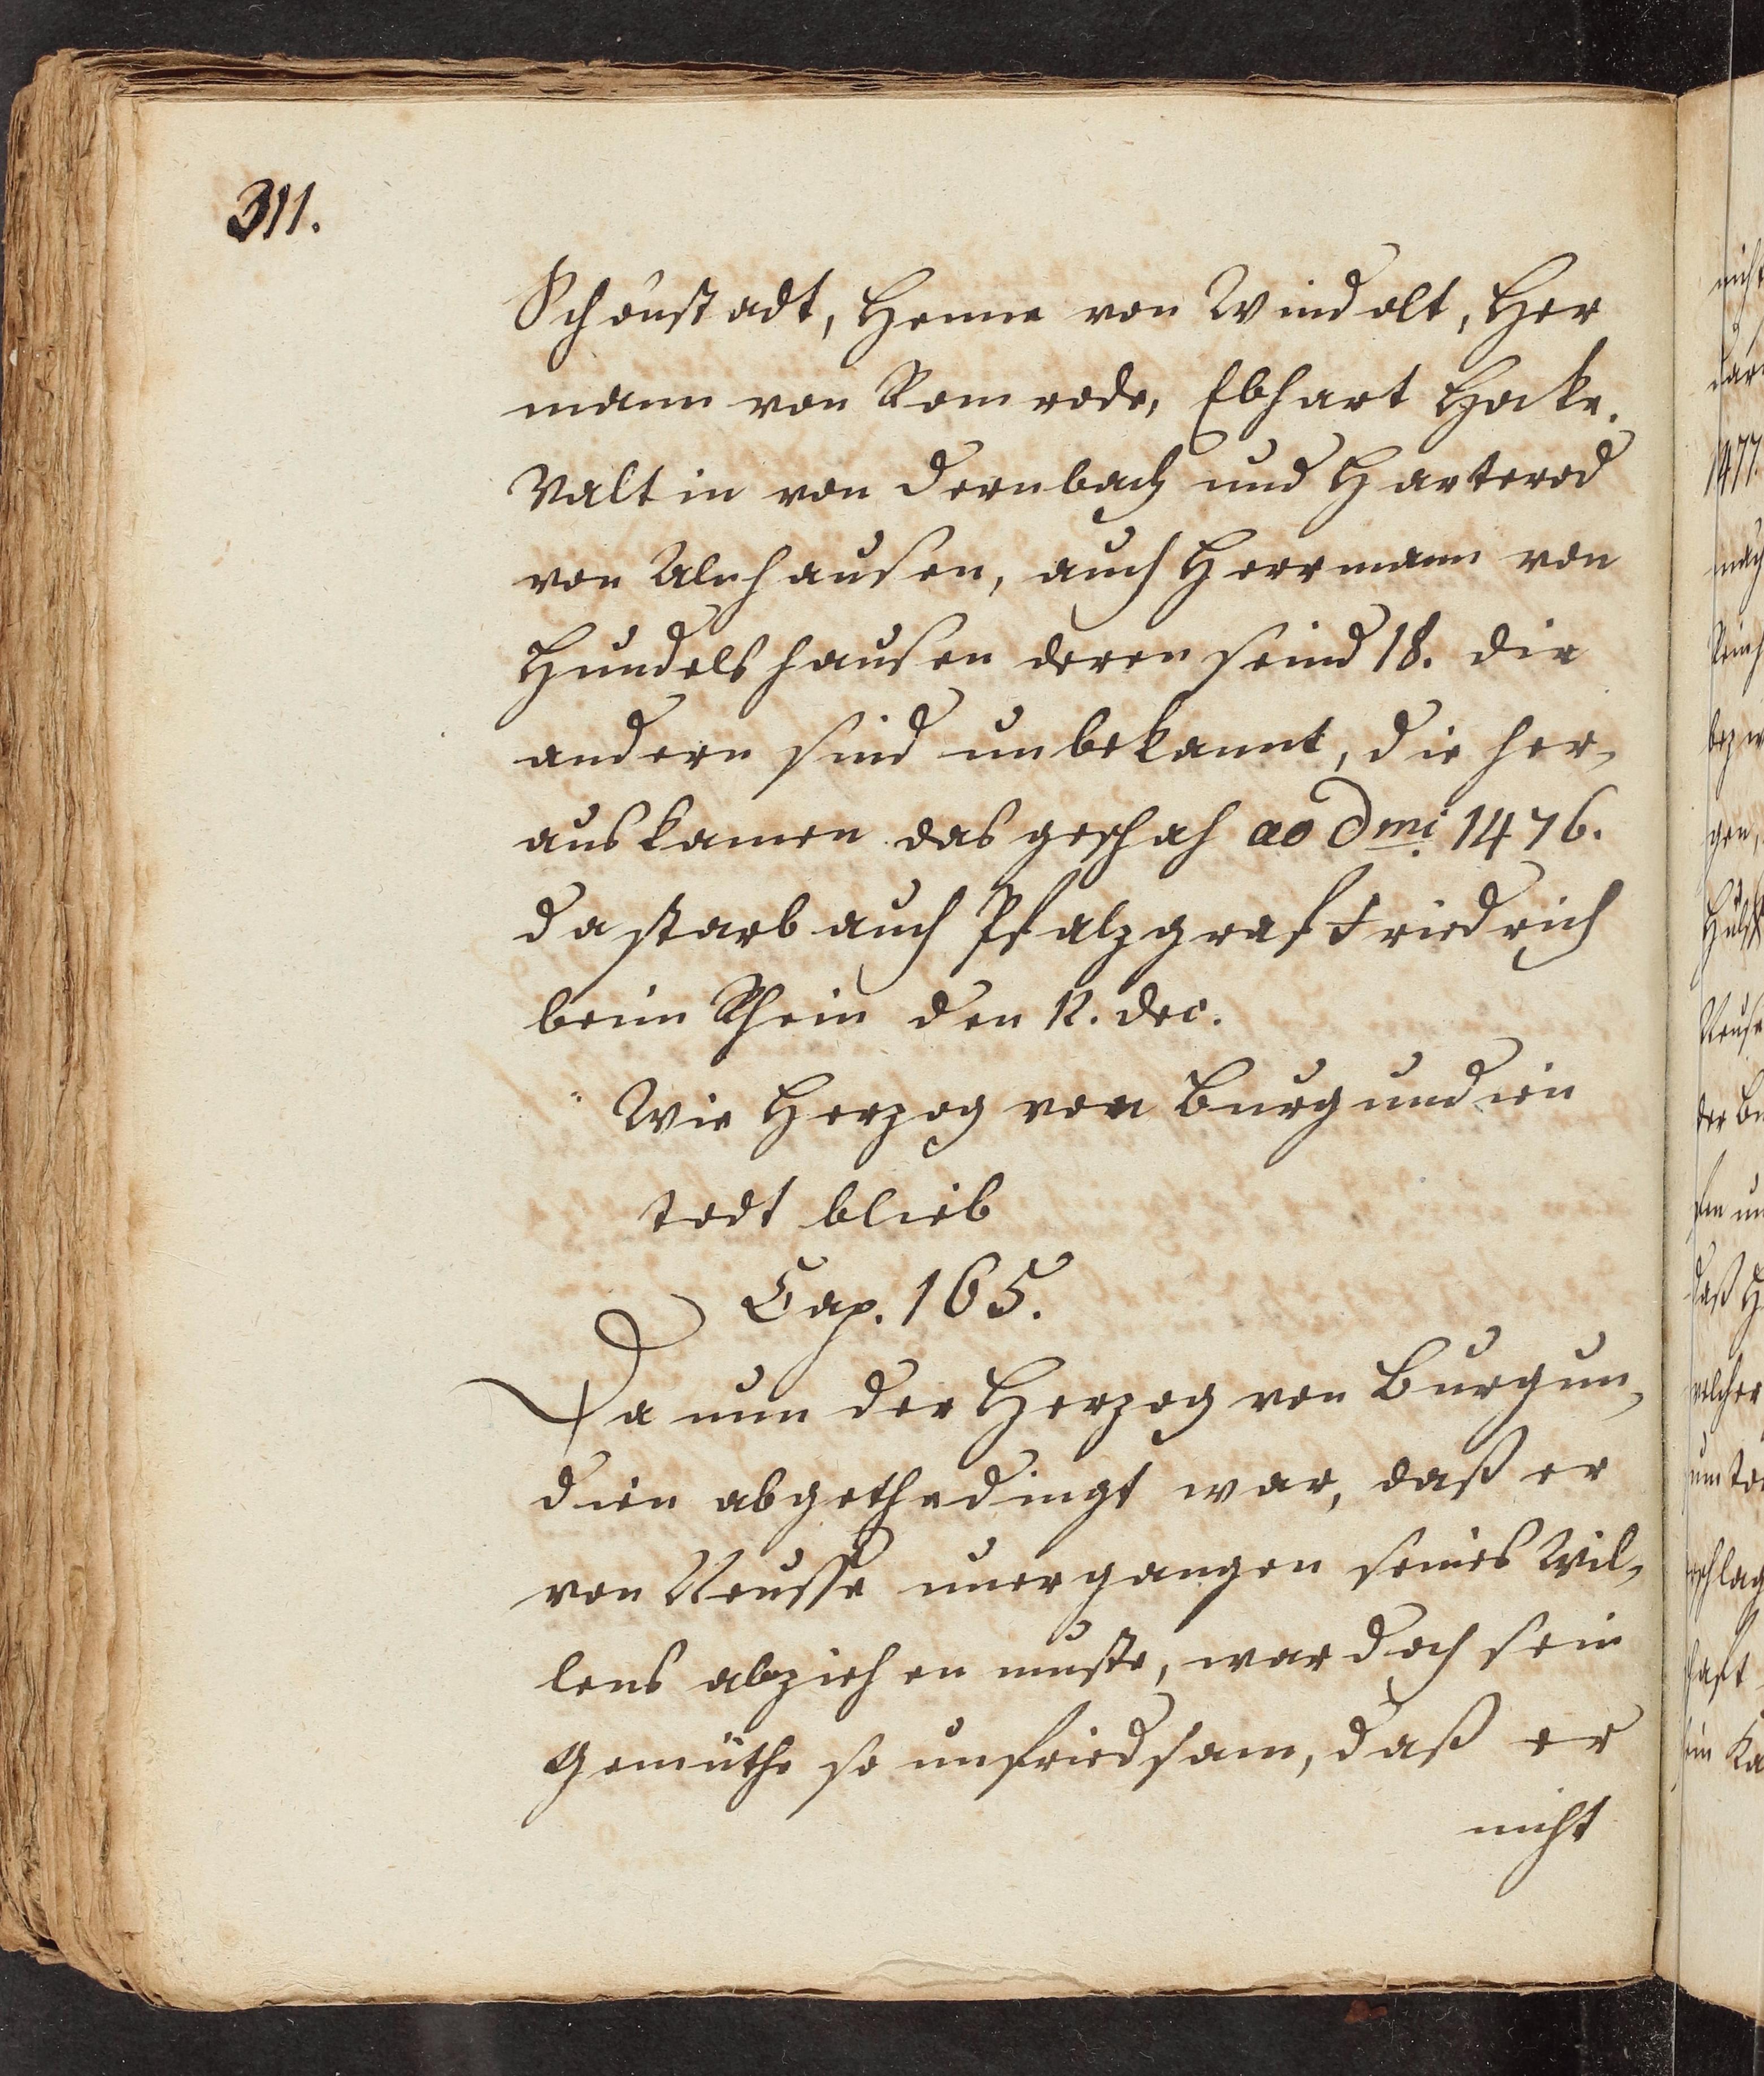 311.
Schönstadt, Henne von Windolt, Her
mann von Romrode, Ebhart Hake.
Valtin von Dernbach und Harterod
von Alnhausen, auch Herrmann von
Hundelshausen deren seind 18. die
andern sind unbekannt, die her,
auskamen das geschah ao Dmi 1476.
da starb auch Pfalzgraf Friedrich
beim Rhein den 12. dec.
Wie Herzog von Burgundien
todt blieb
Cap. 165.
Da nun der Herzog von Burgun,
dien abgethedingt war, daß er
von Neusse unergangen seines Wil,
lens abziehen muste, war doch sein
Gemüthe so unfriedsam, daß er
nicht